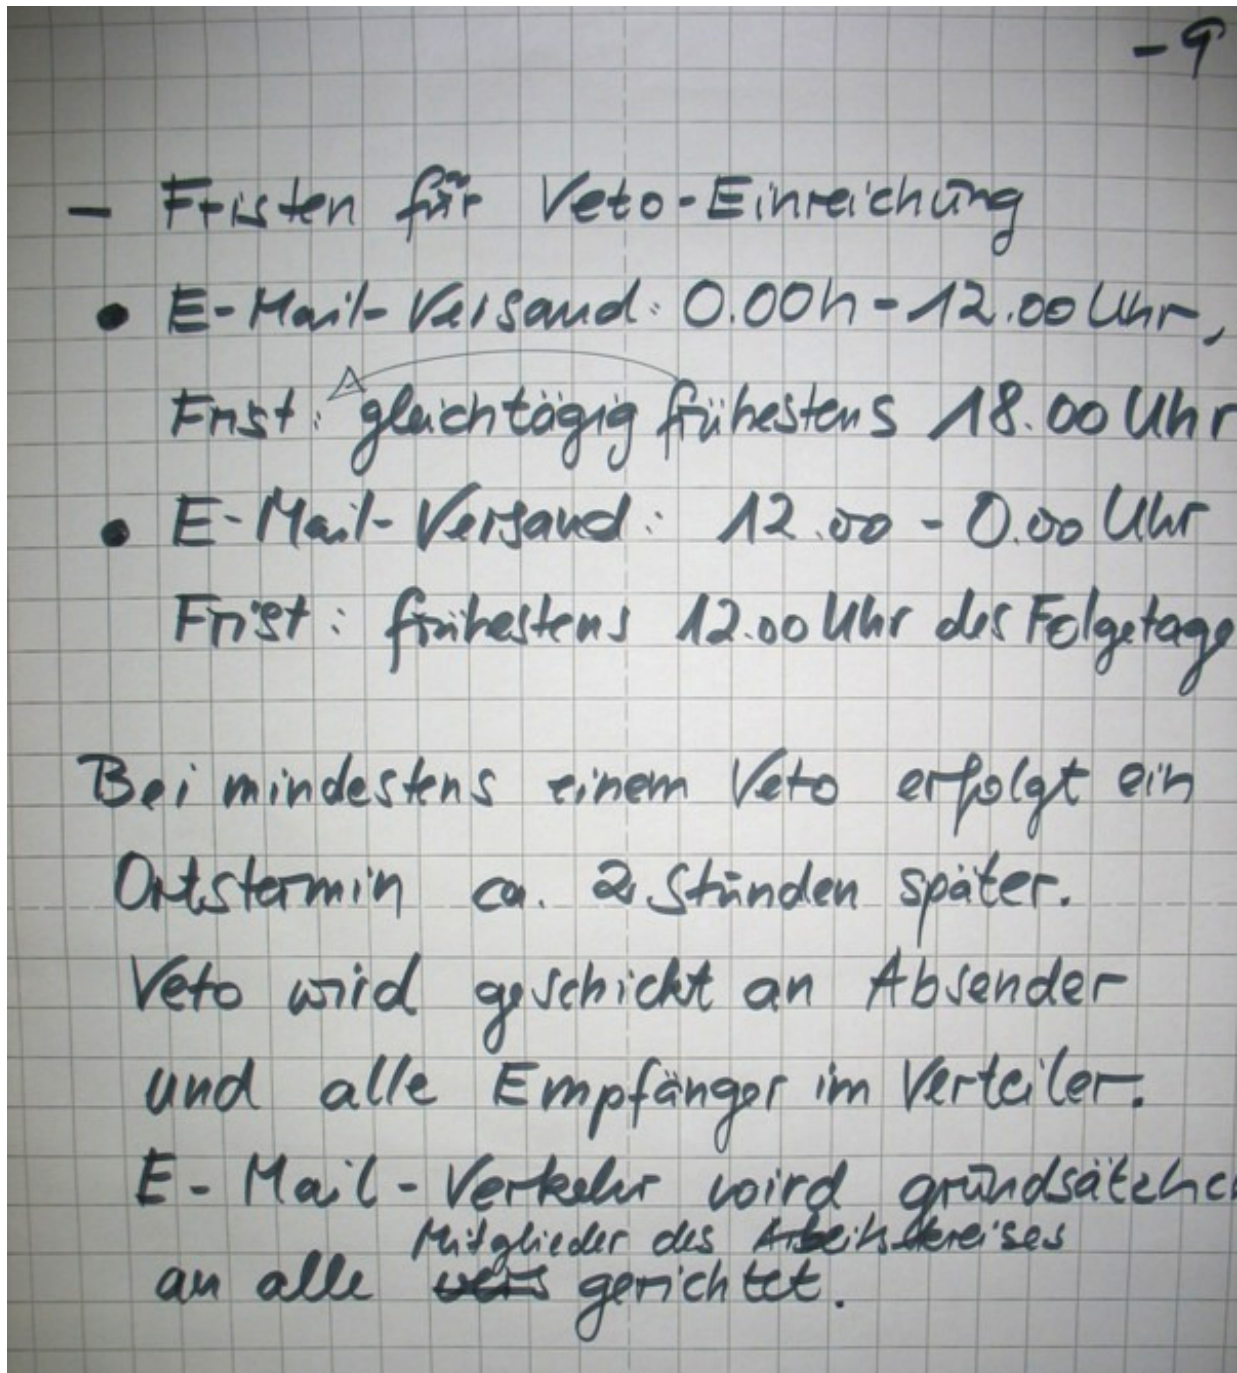 - 9
- Fristen für Veto-Einreichung
• E-Mail-Versand: 0.00h - 12.00 Uhr,
Frist: gleichtägig frühestens 18.00 Uhr
• E-Mail-Versand: 12.00 - 0.00 Uhr
Frist: frühestens 12.00 Uhr des Folgetage
Bei mindestens einem Veto erfolgt ein
Ortstermin ca. 2 Stunden später.
Veto wird geschickt an Absender
und alle Empfänger im Verteiler.
E-Mail-Verkehr wird grundsätzlich
Mitglieder des Arbeitskreises
an alle gerichtet.